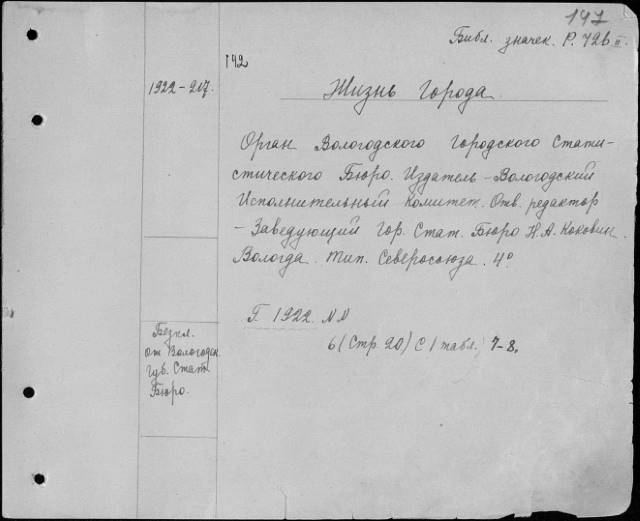 147
Библ. значек. Р. 72b II.
142
1922-217.
Жизнь Города.
Орган Вологодского Городского Стати-
стического Бюро. Издатель - Вологодский
Исполнительный комитет. Отв. редактор
- Заведующий Гор. Стат. Бюро Н.А. Коковин.
Вологда. Тип. Северосоюза. 4°
Г. 1922. NN
6 (Стр. 20) С 1 табл. 7-8.
Безпл.
от Вологодск.
Губ. Стат.
Бюро.